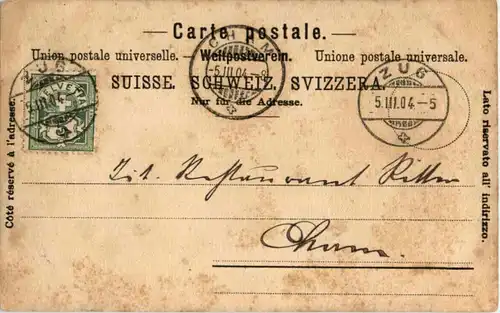 Carte postale.
Union postale universelle. Weltpostverein. Unione postale universale.
SUISSE. SCHWEIZ. SVIZZERA.
Nur für die Adresse.
Côté réservé à l'adresse.
Lato riservato all' indirizzo.
ZUG
5.III.04.
HELVETIA
CHAM
5.III.04.
ZUG
5.III.04.-5
Tit. Restaurant Ritter
Cham.